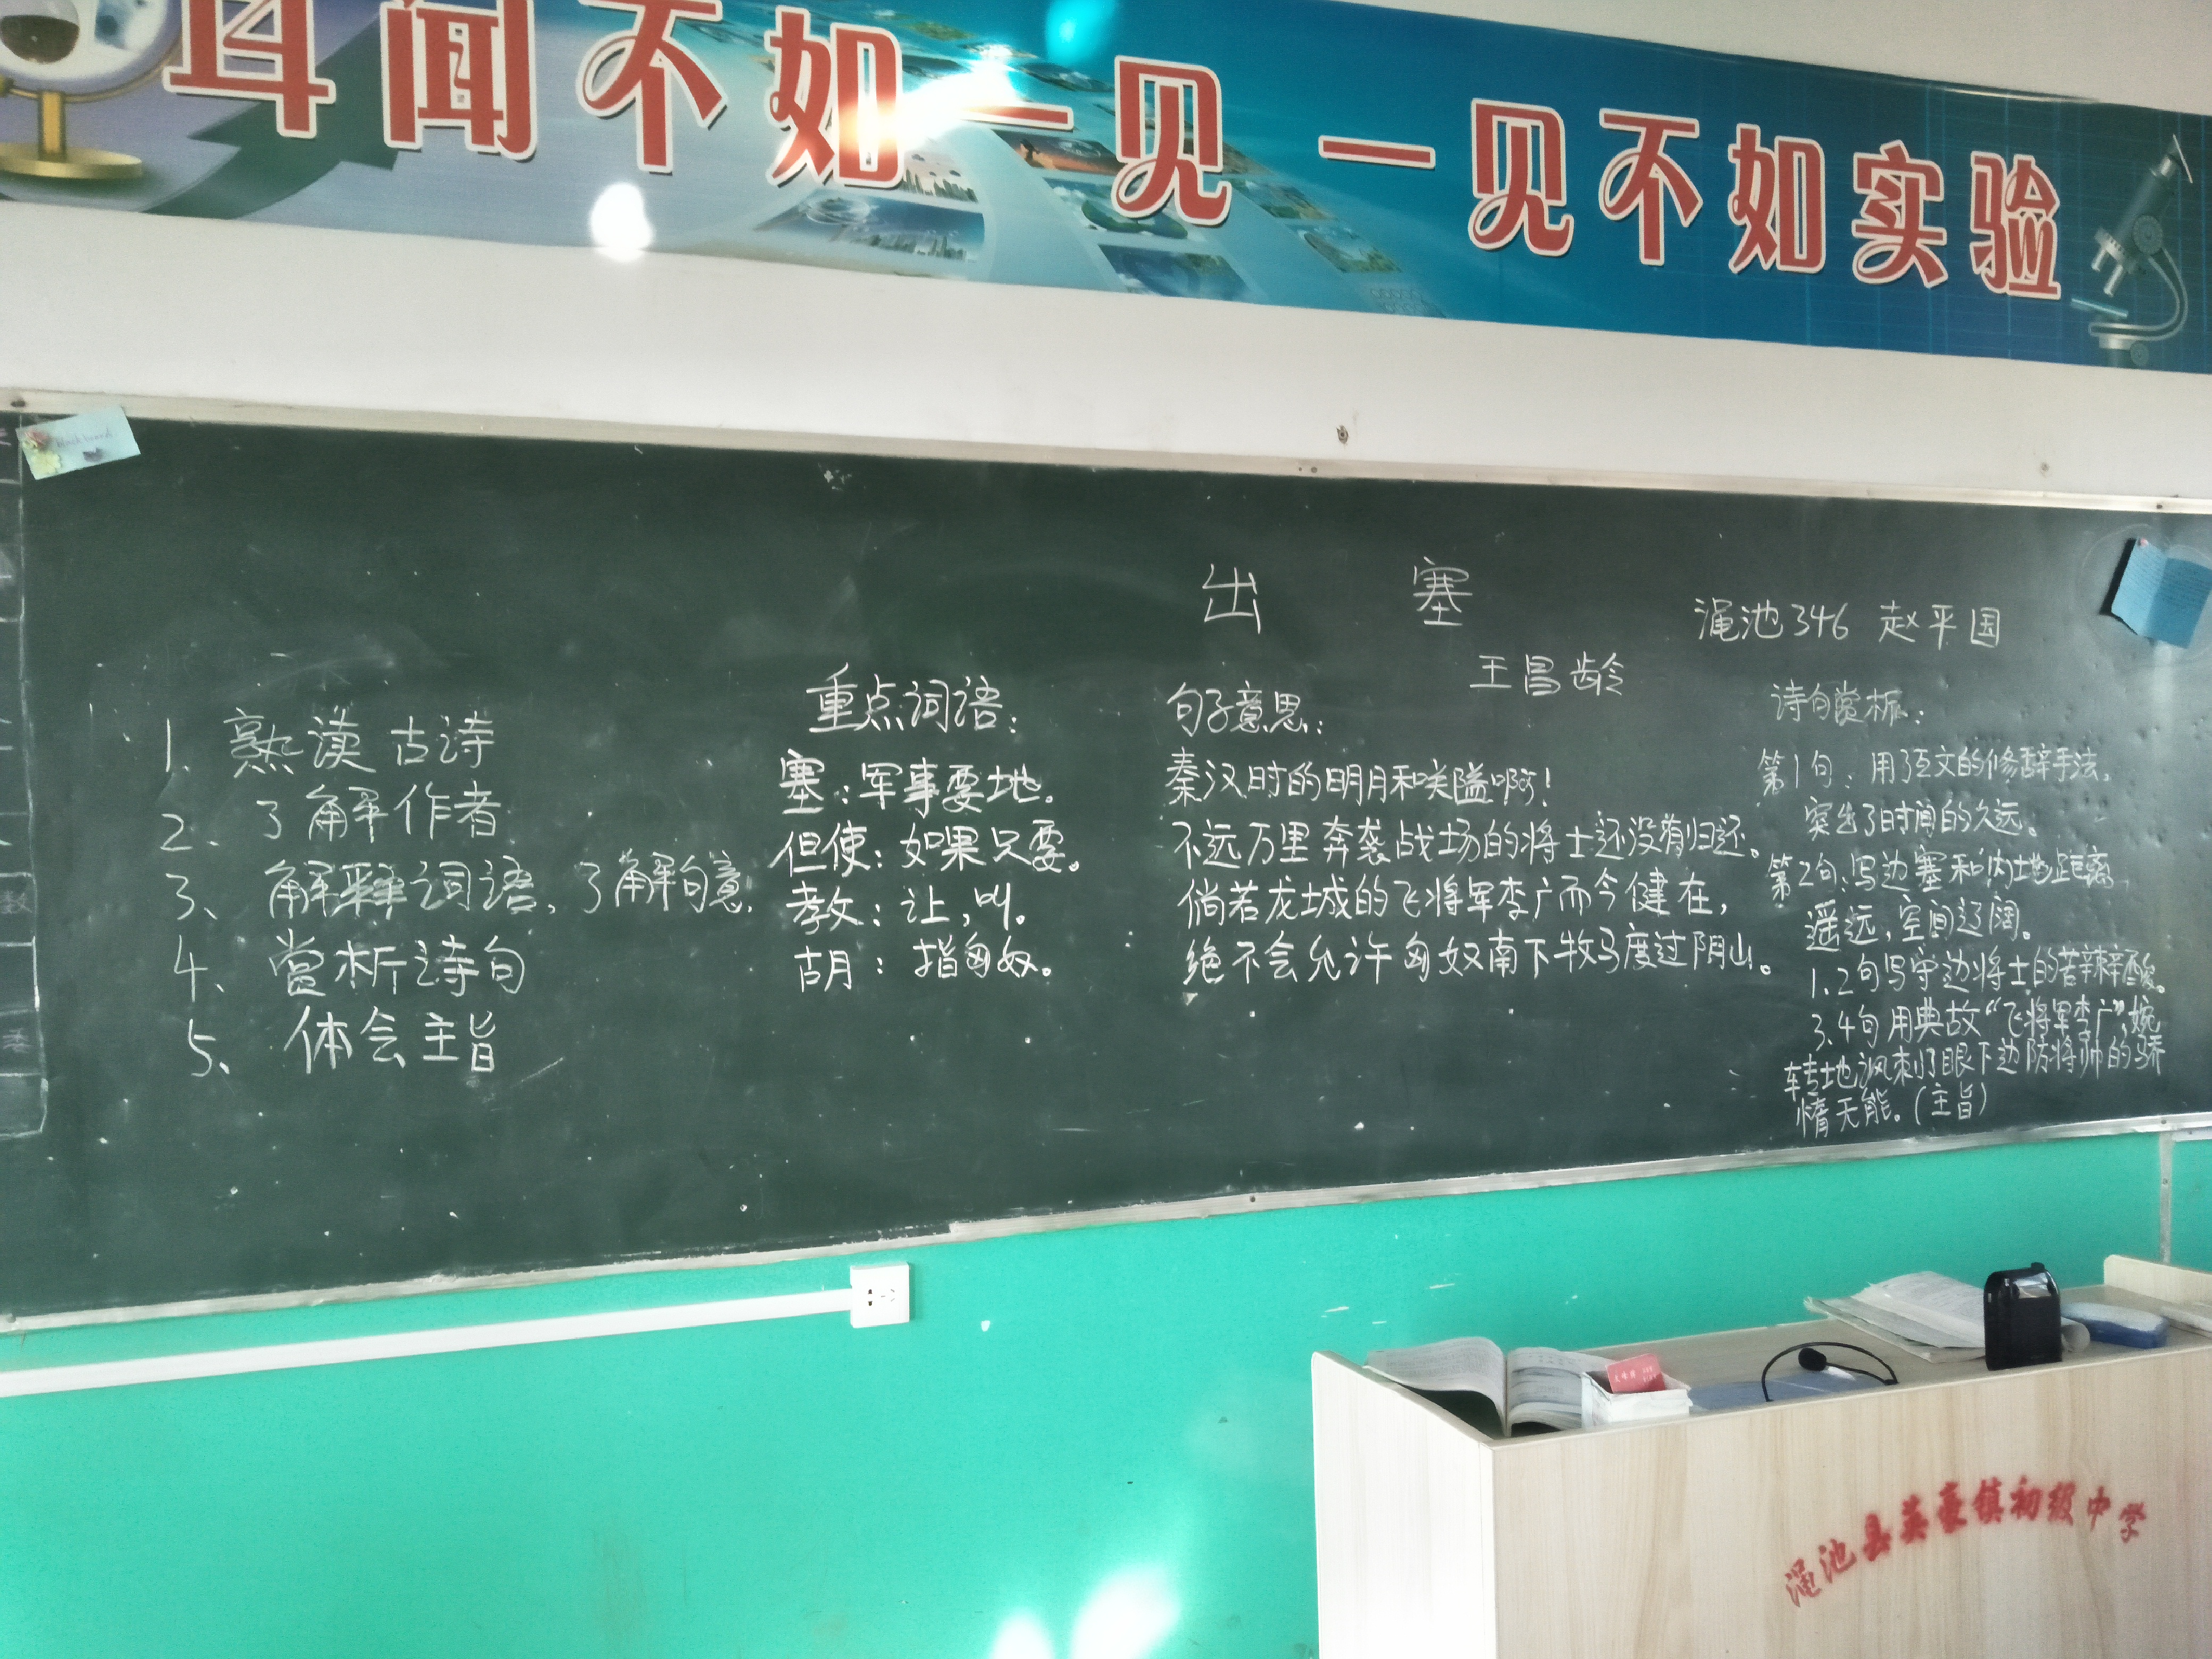 耳闻不如一见 一见不如实验
出 塞
渑池346 赵平国
王昌龄
1、熟读古诗
2、了解作者
3、解释词语，了解句意。
4、赏析诗句
5、体会主旨
重点词语：
塞：军事要地。
但使：如果只要。
教：让，叫。
胡：指匈奴。
句子意思：
秦汉时的明月和关隘啊！
不远万里奔袭战场的将士还没有归还。
倘若龙城的飞将军李广而今健在，
绝不会允许匈奴南下牧马度过阴山。
诗句赏析：
第1句：用了互文的修辞手法。
突出了时间的久远。
第2句：写边塞和内地距离
遥远，空间辽阔。
1、2句写守边将士的苦辣辛酸。
3、4句用典故“飞将军李广”，婉
转地讽刺了眼下边防将帅的骄
惰无能。（主旨）
渑池县英豪镇初级中学